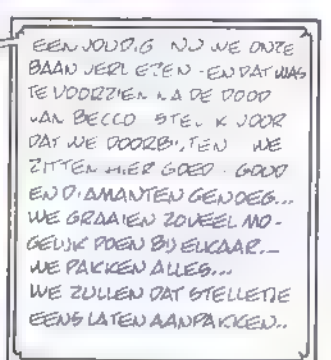 EENVOUDIG NU WE ONZE
BAAN VERLIEZEN - EN DAT WAS
TE VOORZIEN NA DE DOOD
VAN BECCO STEL IK VOOR
DAT WE DOORBIJTEN WE
ZITTEN HIER GOED. GOUD
EN DIAMANTEN GENOEG...
WE GRAAIEN ZOVEEL MO-
GELIJK POEN BIJ ELKAAR...
WE PAKKEN ALLES...
WE ZULLEN DAT STELLETJE
EENS LATEN AANPAKKEN..